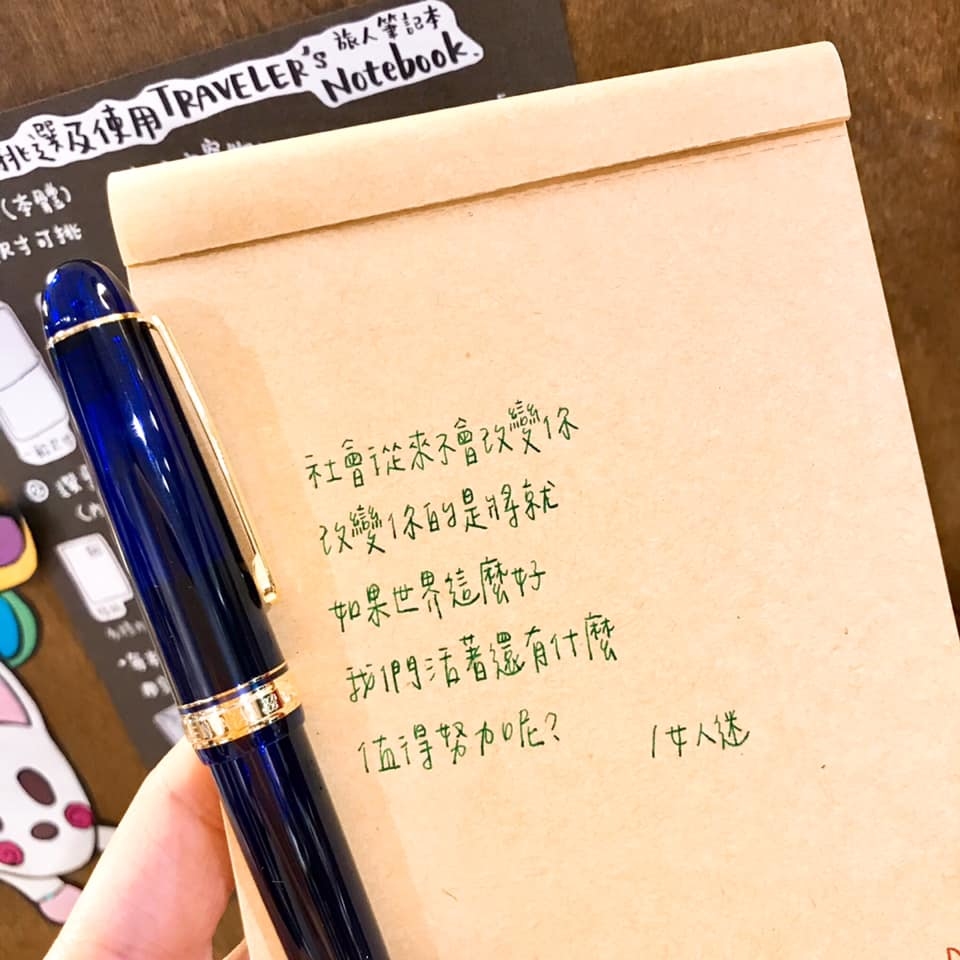 旅人筆記本
挑選及使用TRAVELER's Notebook.
(本體)
尺寸可挑
社會從來不會改變你
改變你的是將就
如果世界這麼好
我們活著還有什麼
值得努力呢?
/女人迷